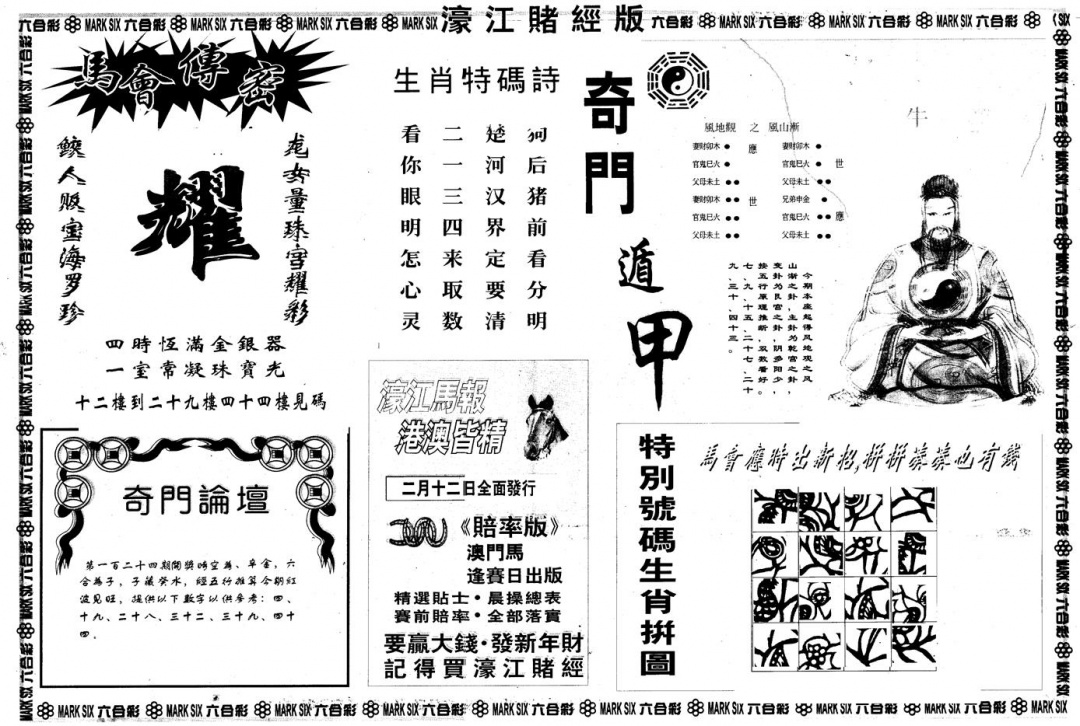 六合彩 MARK SIX 六合彩 MARK SIX 六合彩 MARK SIX 濠江賭經版 六合彩 MARK SIX 六合彩 MARK SIX 六合彩 MARK SIX 六合彩
馬會傳密
龙女量珠宫耀彩
耀
鲛人贩宝海罗珍
四時恆滿金銀器
一室常凝珠寶光
十二樓到二十九樓四十四樓見碼
生肖特碼詩
狗后猪前看分明
楚河汉界定要清
二一三四来取数
看你眼明怎心灵
奇門遁甲
風地觀 之 風山漸
妻財卯木 應 妻財卯木
官鬼巳火 官鬼巳火 世
父母未土 父母未土
妻財卯木 世 兄弟申金
官鬼巳火 官鬼巳火 應
父母未土 父母未土
今期本座起得风地观之风
山渐之卦，主卦为乾宫之卦，
变卦为艮宫之卦，阴多阳少，
按五行原理推断，双数看好。
七、九、十五、二十七、二十
九、三十、四十三。
牛
濠江馬報
港澳皆精
二月十二日全面發行
《賠率版》
澳門馬
逢賽日出版
精選貼士·晨操總表
賽前賠率·全部落實
要贏大錢·發新年財
記得買濠江賭經
奇門論壇
第一百二十四期開獎時空為、辛金，六
合為子，子藏癸水，經五行推算今期紅
波見旺，提供以下數字以供參考：四、
十九、二十八、三十二、三十九、四十
四.
特別號碼生肖拼圖
馬會應時出新招,拼拼湊湊也有錢
MARK SIX 六合彩 MARK SIX 六合彩 MARK SIX 六合彩 MARK SIX 六合彩 MARK SIX 六合彩 MARK SIX 六合彩 MARK SIX 六合彩 MARK SIX